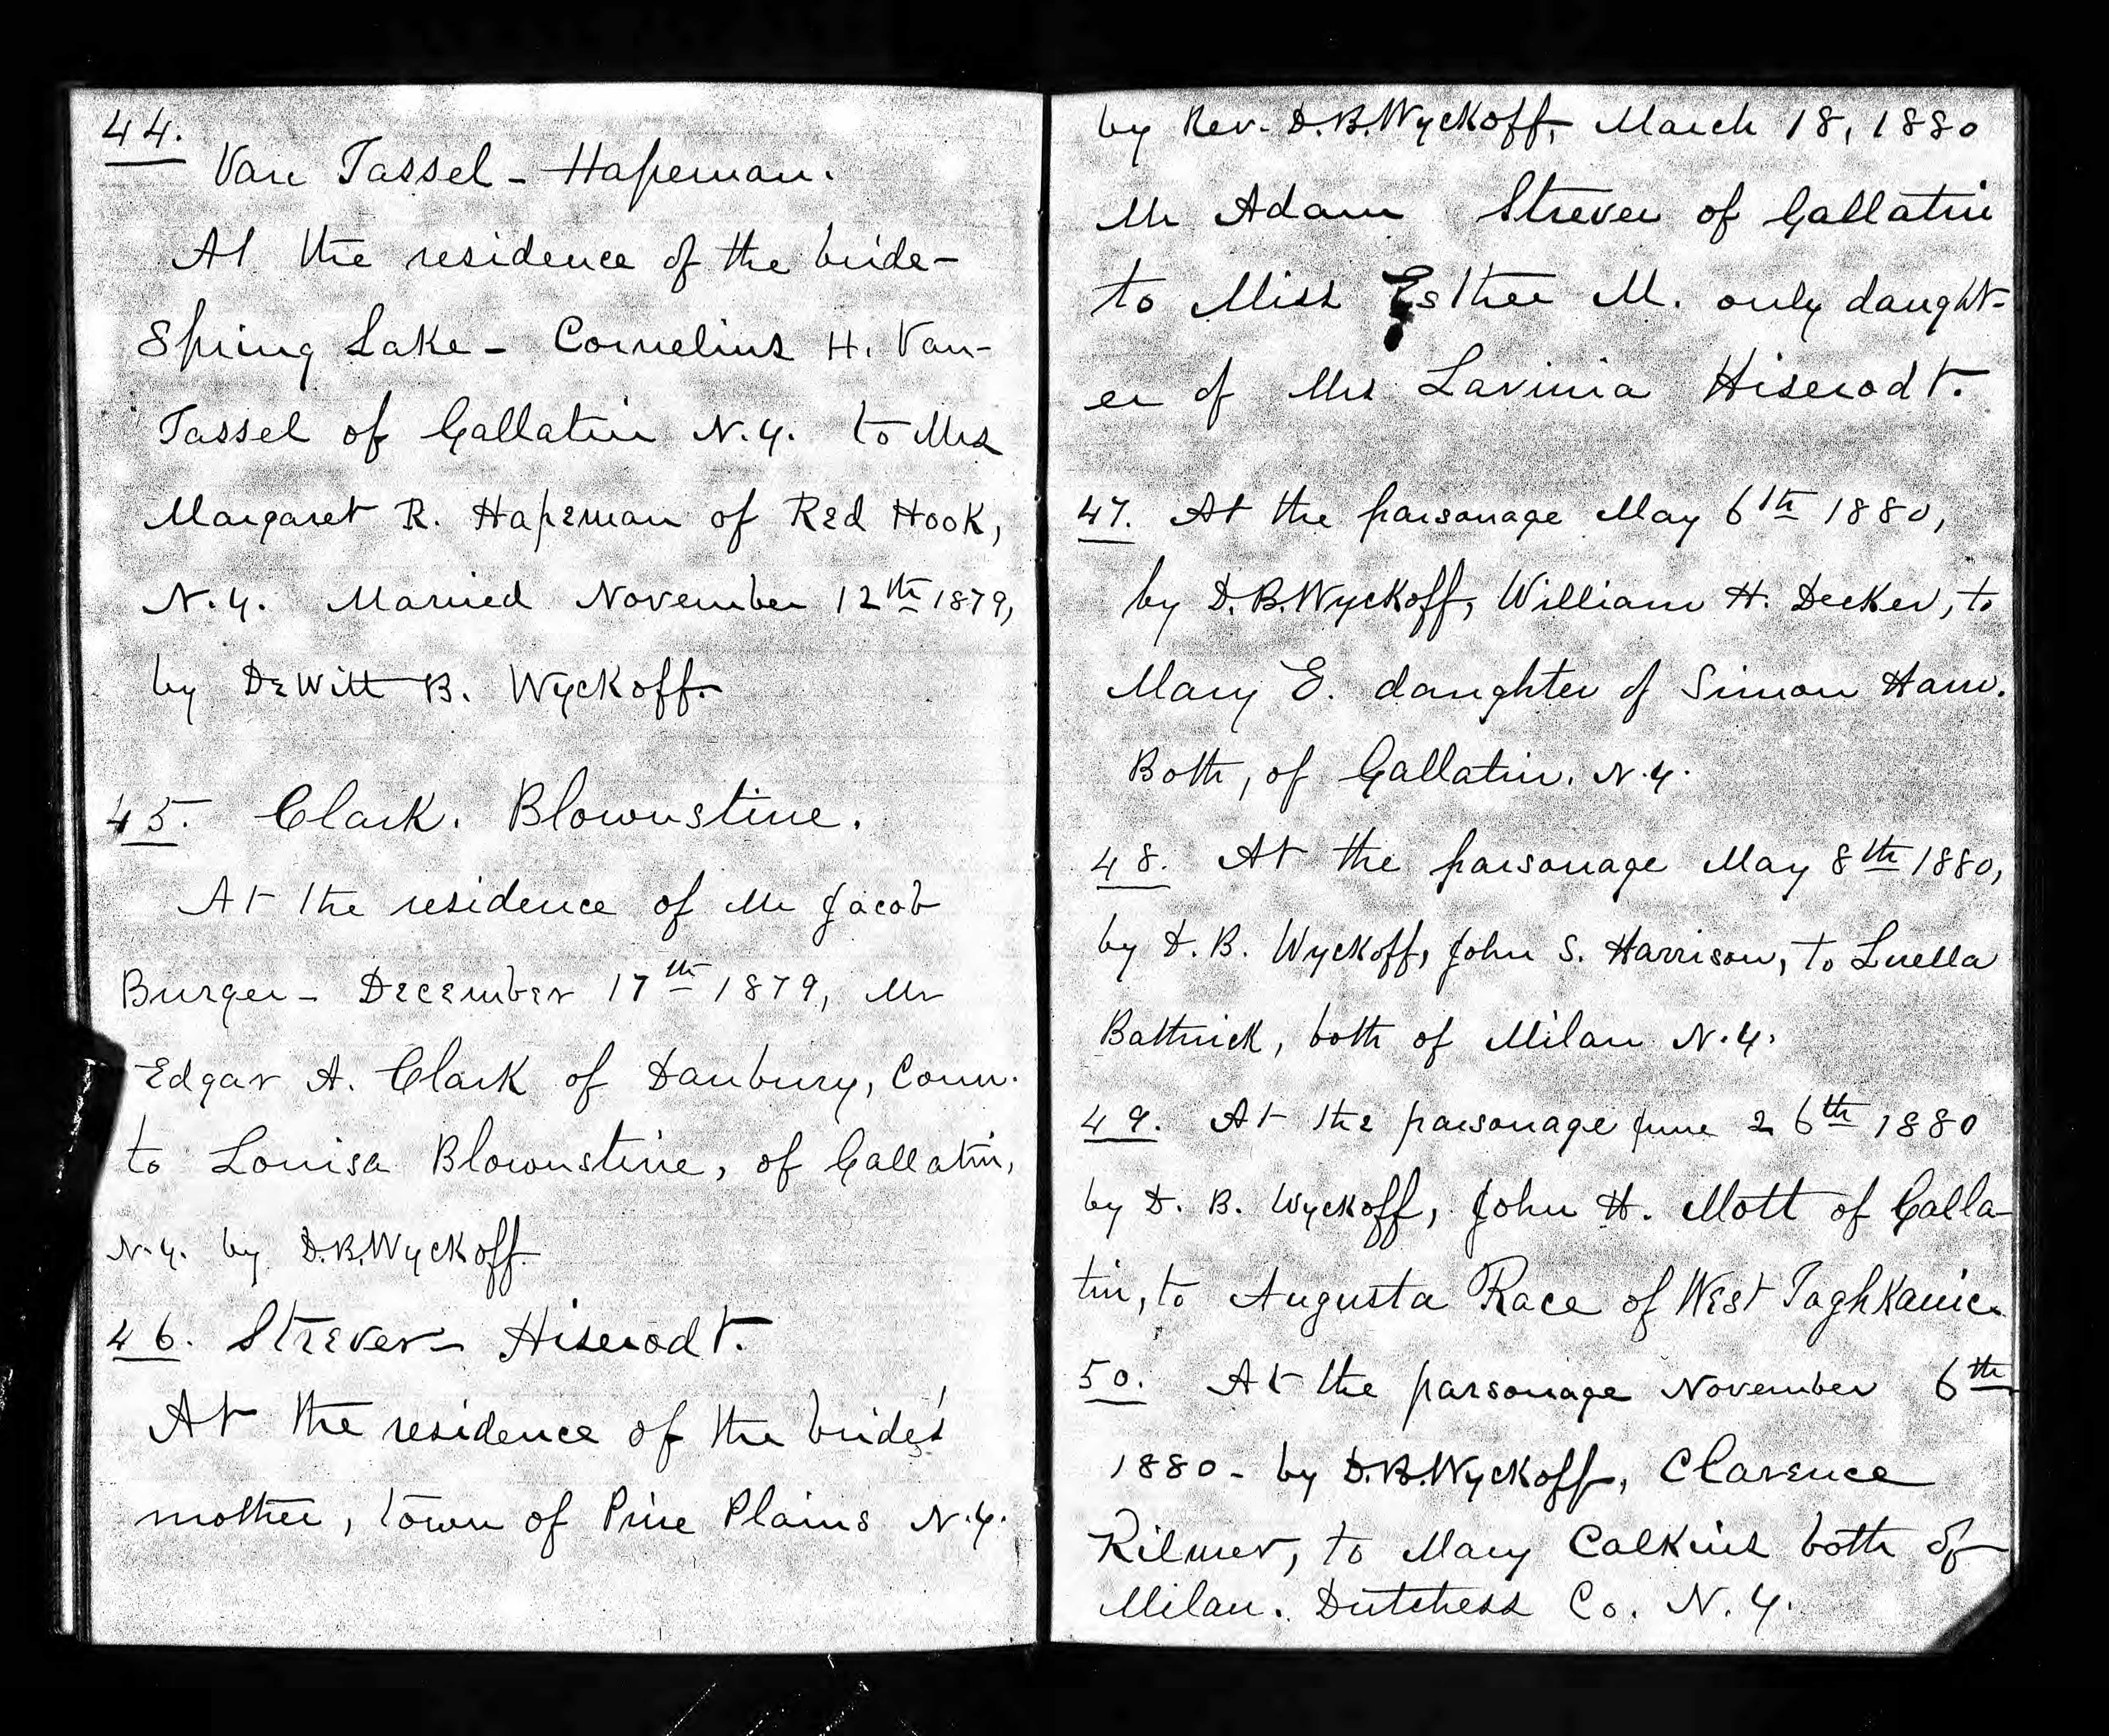 44.
Van Tassel - Hapeman.
At the residence of the bride -
Spring Lake - Cornelius H. Van-
Tassel of Gallatin N.Y. to Mrs
Margaret R. Hapeman of Red Hook,
N.Y. Married November 12th 1879,
by DeWitt B. Wyckoff.
45. Clark. Blownstine.
At the residence of Mr Jacob
Burger - December 17th 1879, Mr
Edgar A. Clark of Danbury, Conn.
to Louisa Blownstine, of Gallatin,
N.Y. by D.B. Wyckoff.
46. Strever - Hiserodt.
At the residence of the bride's
mother, town of Pine Plains N.Y.
by Rev. D.B. Wyckoff, March 18, 1880
Mr Adam Strever of Gallatin
to Miss Esther M. only daught-
er of Mrs Lavinia Hiserodt.
47. At the parsonage May 6th 1880,
by D.B. Wyckoff, William H. Decker, to
Mary E. daughter of Simon Ham.
Both, of Gallatin. N.Y.
48. At the parsonage May 8th 1880,
by D.B. Wyckoff, John S. Harrison, to Luella
Bathrick, both of Milan N.Y.
49. At the parsonage June 26th 1880
by D. B. Wyckoff, John H. Mott of Galla-
tin, to Augusta Race of West Taghkanic.
50. At the parsonage November 6th
1880 - by D.B. Wyckoff, Clarence
Kilmer, to Mary Calkins both of
Milan. Dutchess Co. N.Y.